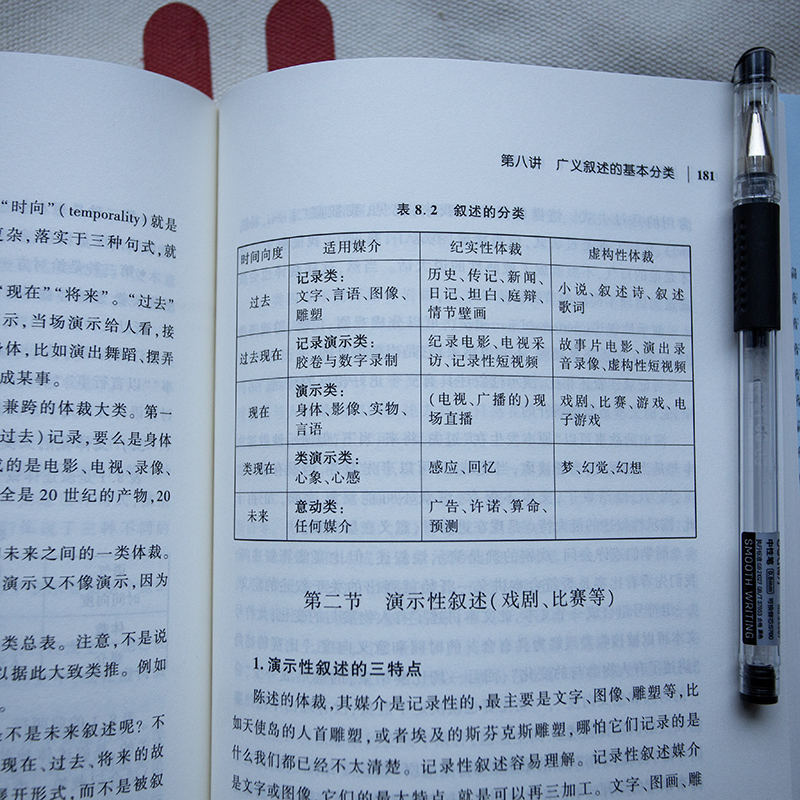 “时向”(temporality)就是
杂,落实于三种句式,就
“现在”“将来”。“过去”
示,当场演示给人看,接
体,比如演出舞蹈、摆弄
成某事。
兼跨的体裁大类。第一
过去)记录,要么是身体
的是电影、电视、录像、
全是20世纪的产物,20
未来之间的一类体裁。
演示又不像演示,因为
类总表。注意,不是说
以据此大致类推。例如
是不是未来叙述呢?不
现在、过去、将来的故
展开形式,而不是被叙
第八讲 广义叙述的基本分类 181
表8.2 叙述的分类
时间向度 适用媒介 纪实性体裁 虚构性体裁
过去
记录类:
文字、言语、图像、
雕塑
历史、传记、新闻、
日记、坦白、庭辩、
情节壁画
小说、叙述诗、叙述
歌词
过去现在
记录演示类:
胶卷与数字录制
纪录电影、电视采
访、记录性短视频
故事片电影、演出录
音录像、虚构性短视频
现在
演示类:
身体、影像、实物、
言语
(电视、广播的)现
场直播
戏剧、比赛、游戏、电
子游戏
类现在
类演示类:
心象、心感
感应、回忆
梦、幻觉、幻想
未来
意动类:
任何媒介
广告、许诺、算命、
预测
第二节 演示性叙述(戏剧、比赛等)
1.演示性叙述的三特点
陈述的体裁,其媒介是记录性的,最主要是文字、图像、雕塑等,比
如天使岛的人首雕塑,或者埃及的斯芬克斯雕塑,哪怕它们记录的是
什么我们都已经不太清楚。记录性叙述容易理解。记录性叙述媒介
是文字或图像,它们的最大特点,就是可以再三加工。文字、图画、雕
中性笔
SMOOTH WRITING